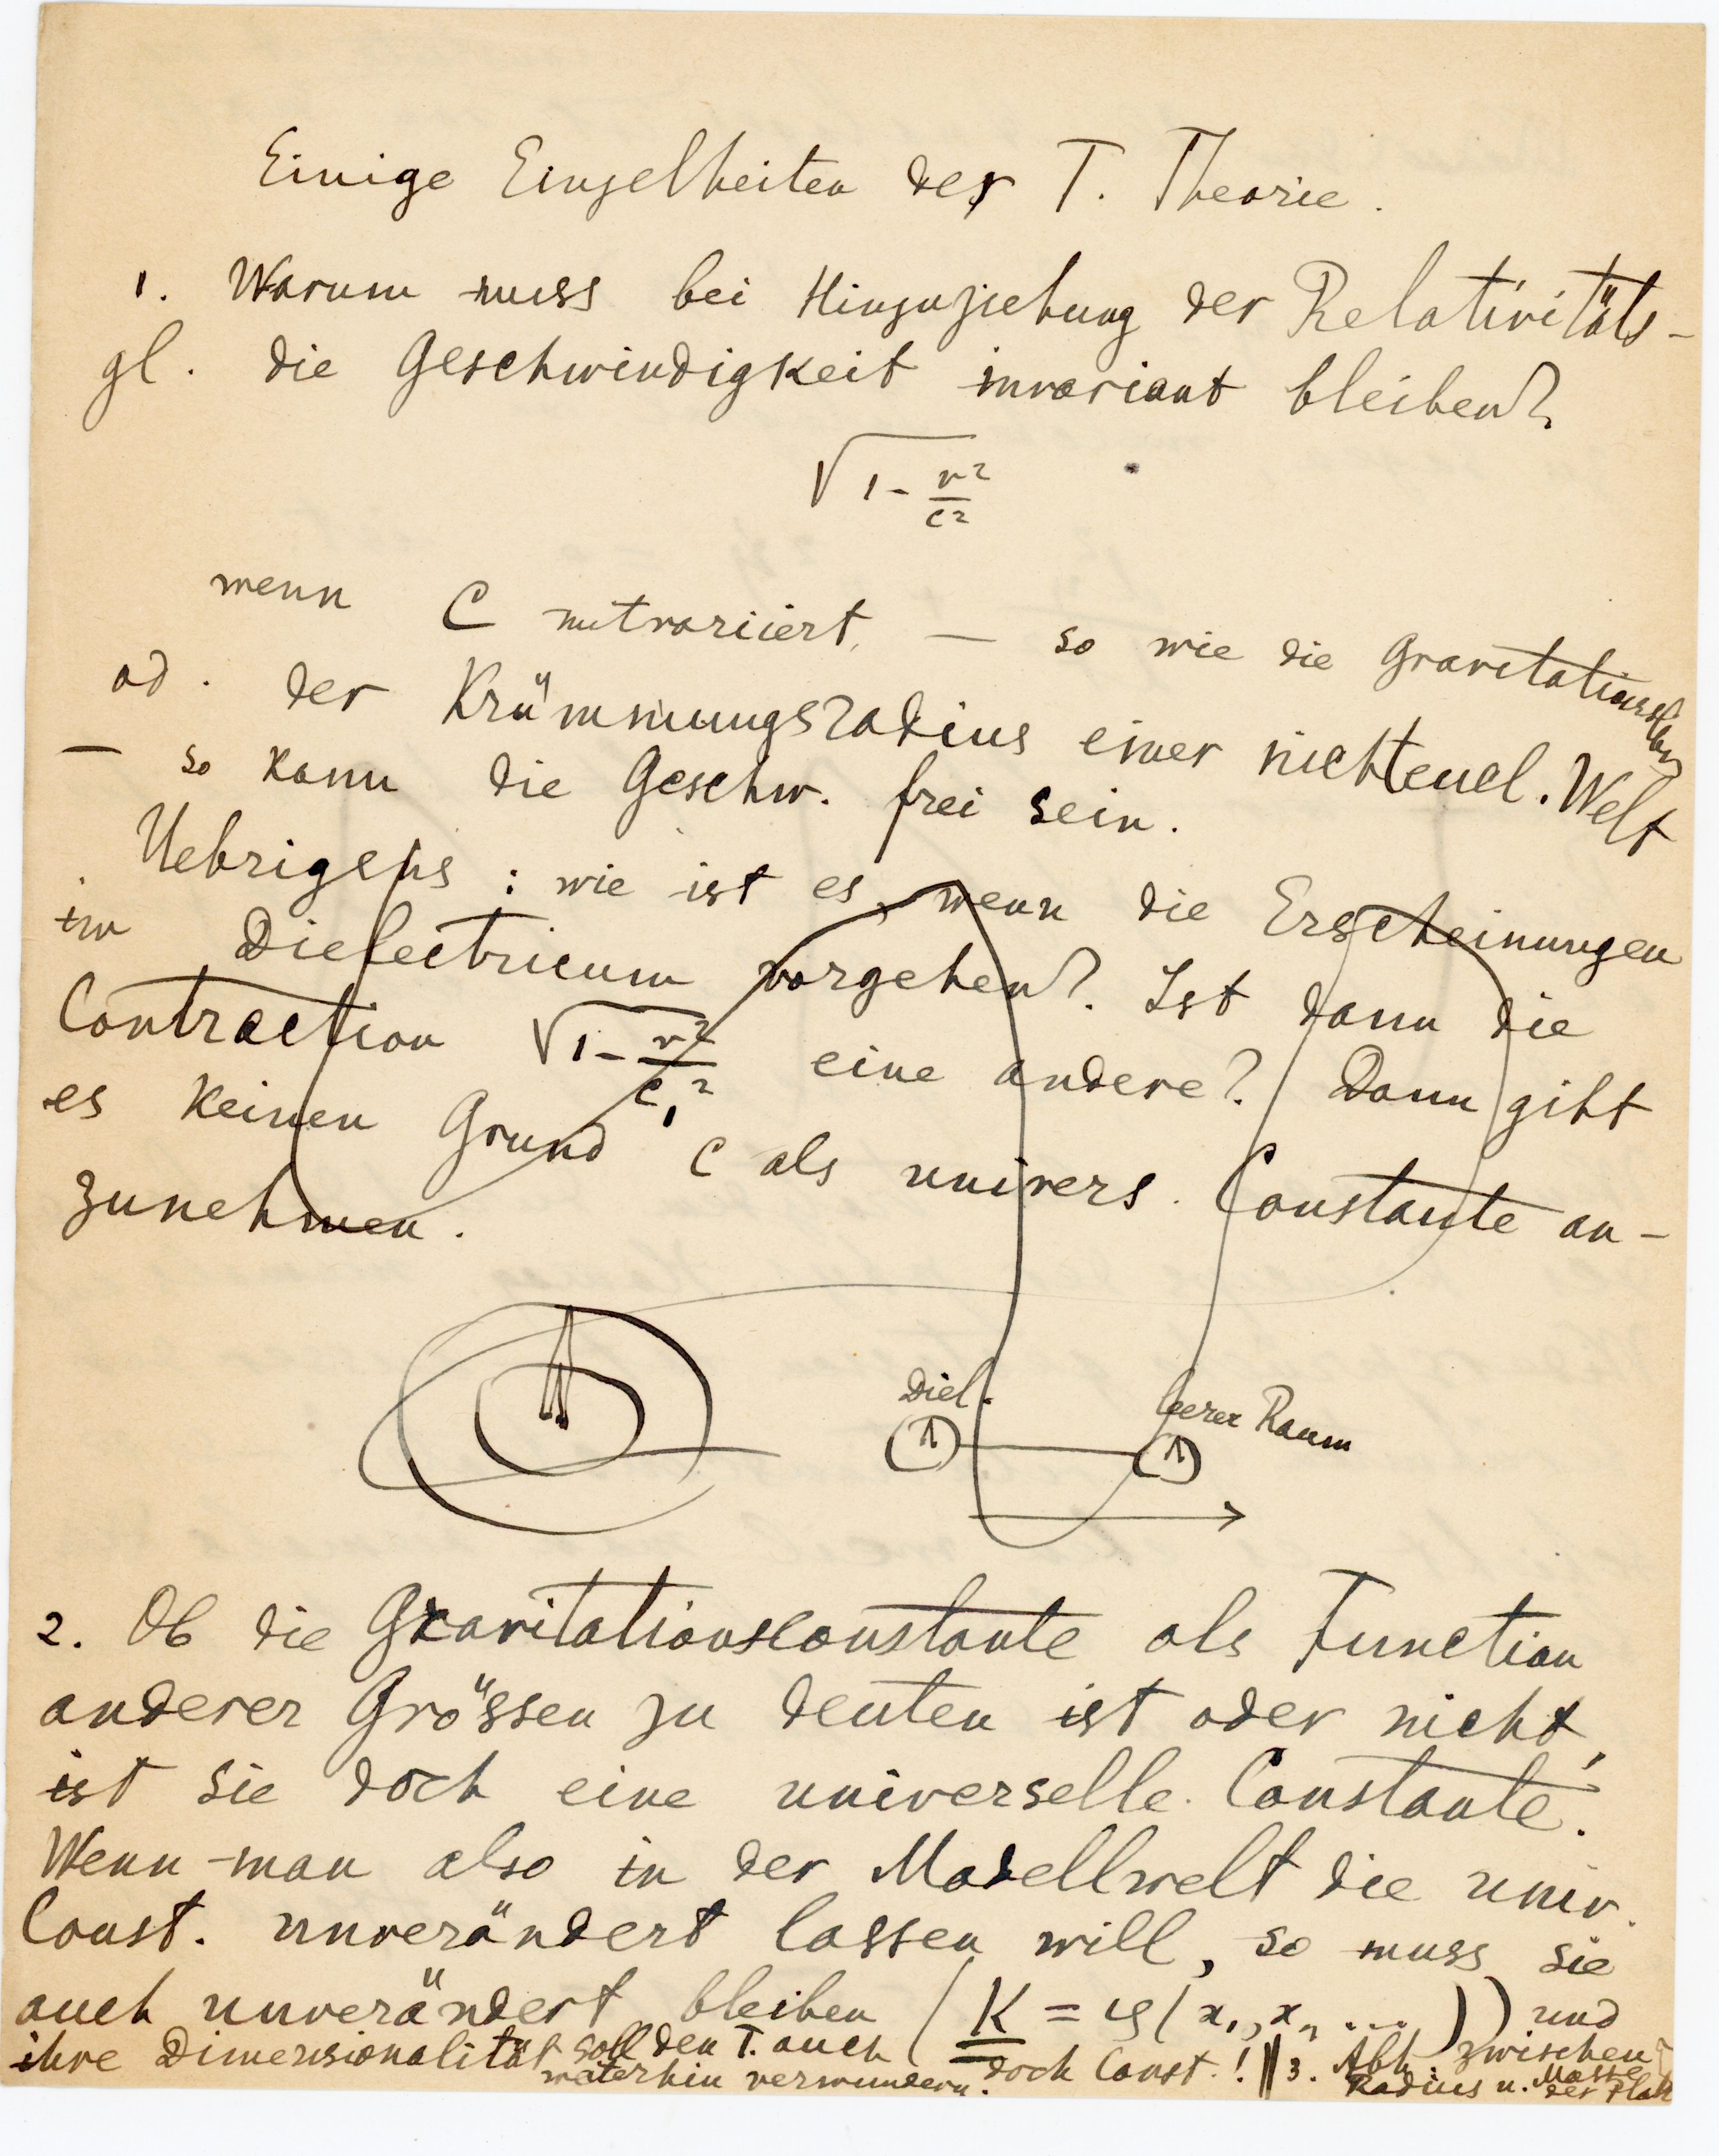 Einige Einzelheiten der T. Theorie.
1. Warum muss bei Hinzuziehung der Relativitäts-
gl. die Geschwindigkeit invariant bleiben?
√1 - v²/c²
wenn C mitvariiert, — so wie die Gravitations
od. der Krümmungsradius einer nichteucl. Welt
— so kann die Geschw. frei sein.
Uebrigens : wie ist es, wenn die Erscheinungen
im Dielectricum vorgehen? Ist dann die
Contraction √1 - v²/c₁² eine andere? Dann gibt
es keinen Grund c als univers. Constante an-
zunehmen.
Diel. leerer Raum
2. Ob die Gravitationsconstante als Function
anderer Grössen zu deuten ist oder nicht,
ist sie doch eine universelle Constante.
Wenn man also in der Modellwelt die univ.
Const. unverändert lassen will, so muss sie
auch unverändert bleiben (K = φ(x₁, x₂ ....)) und
ihre Dimensionalität soll den T. auch doch Const.! || 3. Abh. zwischen
weiterhin verwundern. Radius u. Masse
der